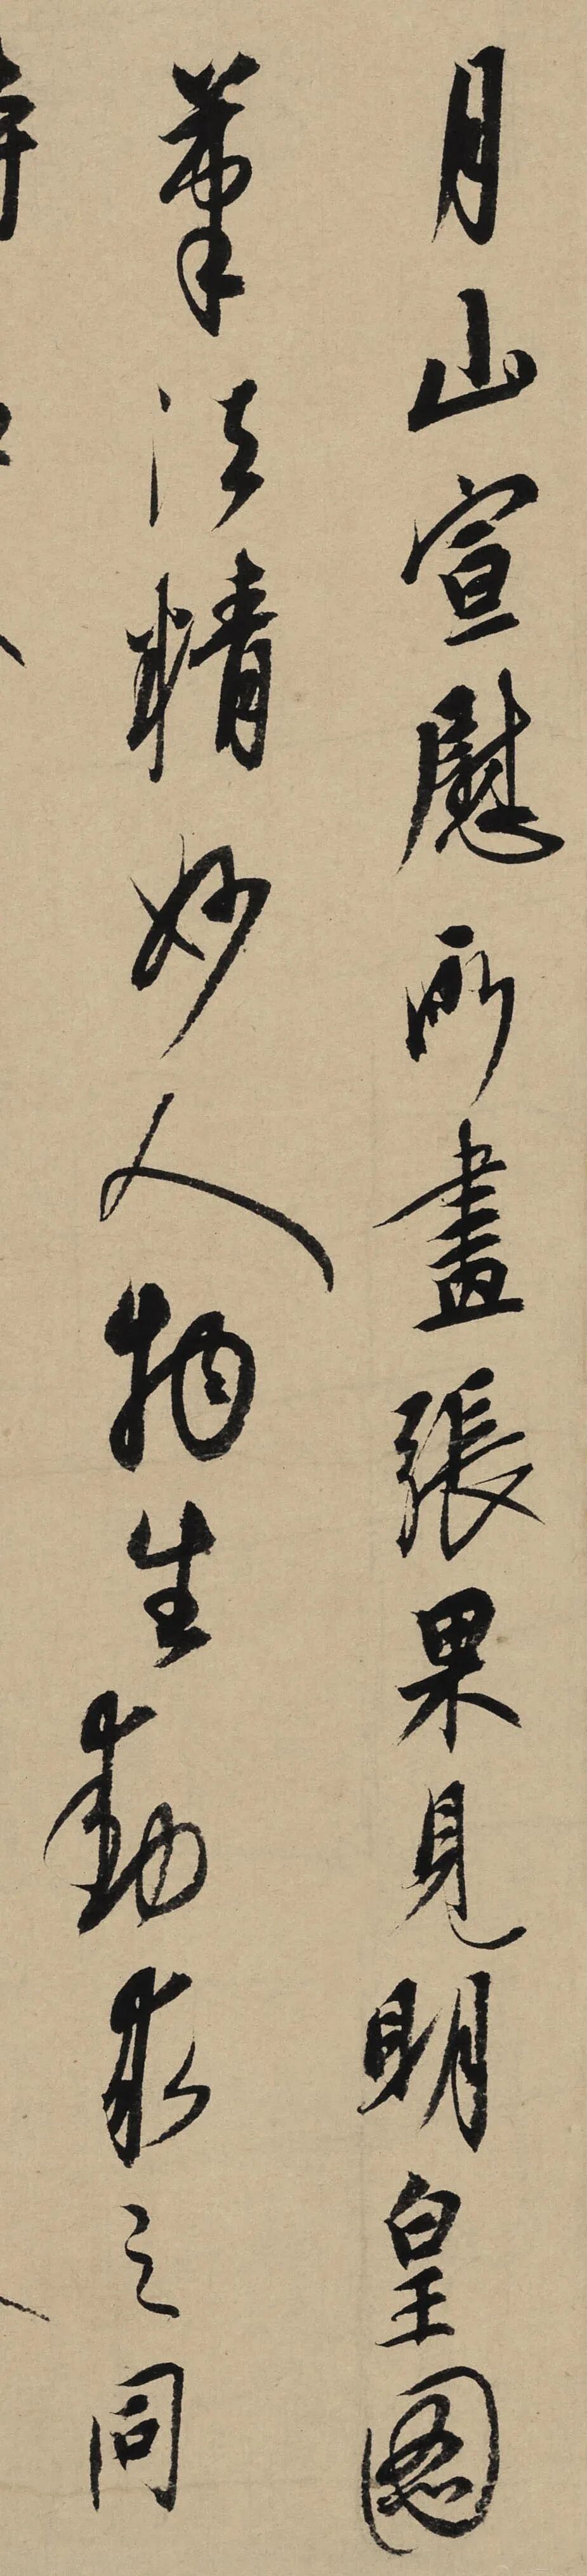 月山宣慰所畫張果見明皇圖
筆法精妙人物生動求之同